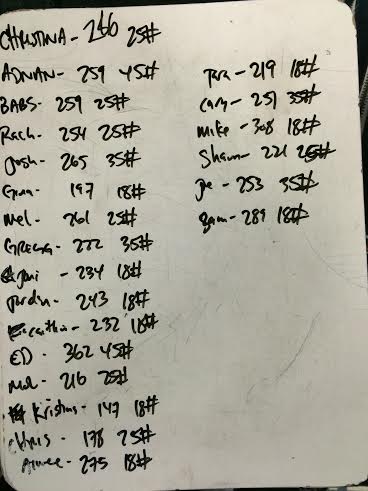 CHRISTINA - 266 25#
ADNAN - 259 45#
BABS - 259 25#
Rach - 254 25#
Josh - 265 35#
Gina - 197 18#
Mel - 261 25#
- 222 35#
- 234 18#
Jordin - 243 18#
Caitlin - 232 18#
ED - 362 45#
Mol - 216 25#
Kristins - 147 18#
Chris - 178 25#
Aimee - 275 18#
Tara - 219 18#
Cary - 251 35#
Mike - 308 18#
Shawn - 221 25#
Joe - 253 35#
- 289 18#